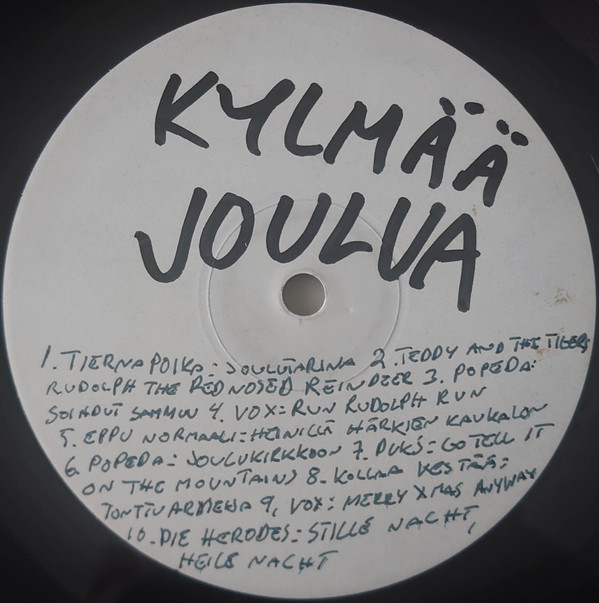 KYLMÄÄ
JOULUA
1. TIERNAPOIKA: JOULUTARINA 2. TEDDY AND THE TIGERS
RUDOLPH THE REDNOSED REINDEER 3. POPEDA:
SOIHDUT SAMMUU 4. VOX: RUN RUDOLPH RUN
5. EPPU NORMAALI: HEINILLÄ HÄRKIEN KAUKALON
6. POPEDA: JOULUKIRKKOON 7. DUKS: GO TELL IT
ON THE MOUNTAINS 8. KOLLAA KESTÄÄ:
TONTTUARMEIJA 9. VOX: MERRY XMAS ANYWAY
10. DIE HERODES: STILLE NACHT,
HEILE NACHT